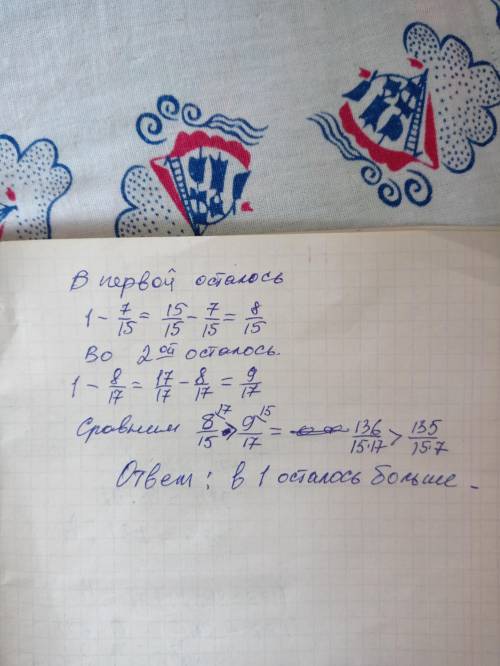 В первой осталось
1 - 7/15 = 15/15 - 7/15 = 8/15
Во 2ой осталось.
1 - 8/17 = 17/17 - 8/17 = 9/17
Сравним 8/15 17 > 9/17 15 = 136/15·17 > 135/15·7
Ответ: в 1 осталось больше.